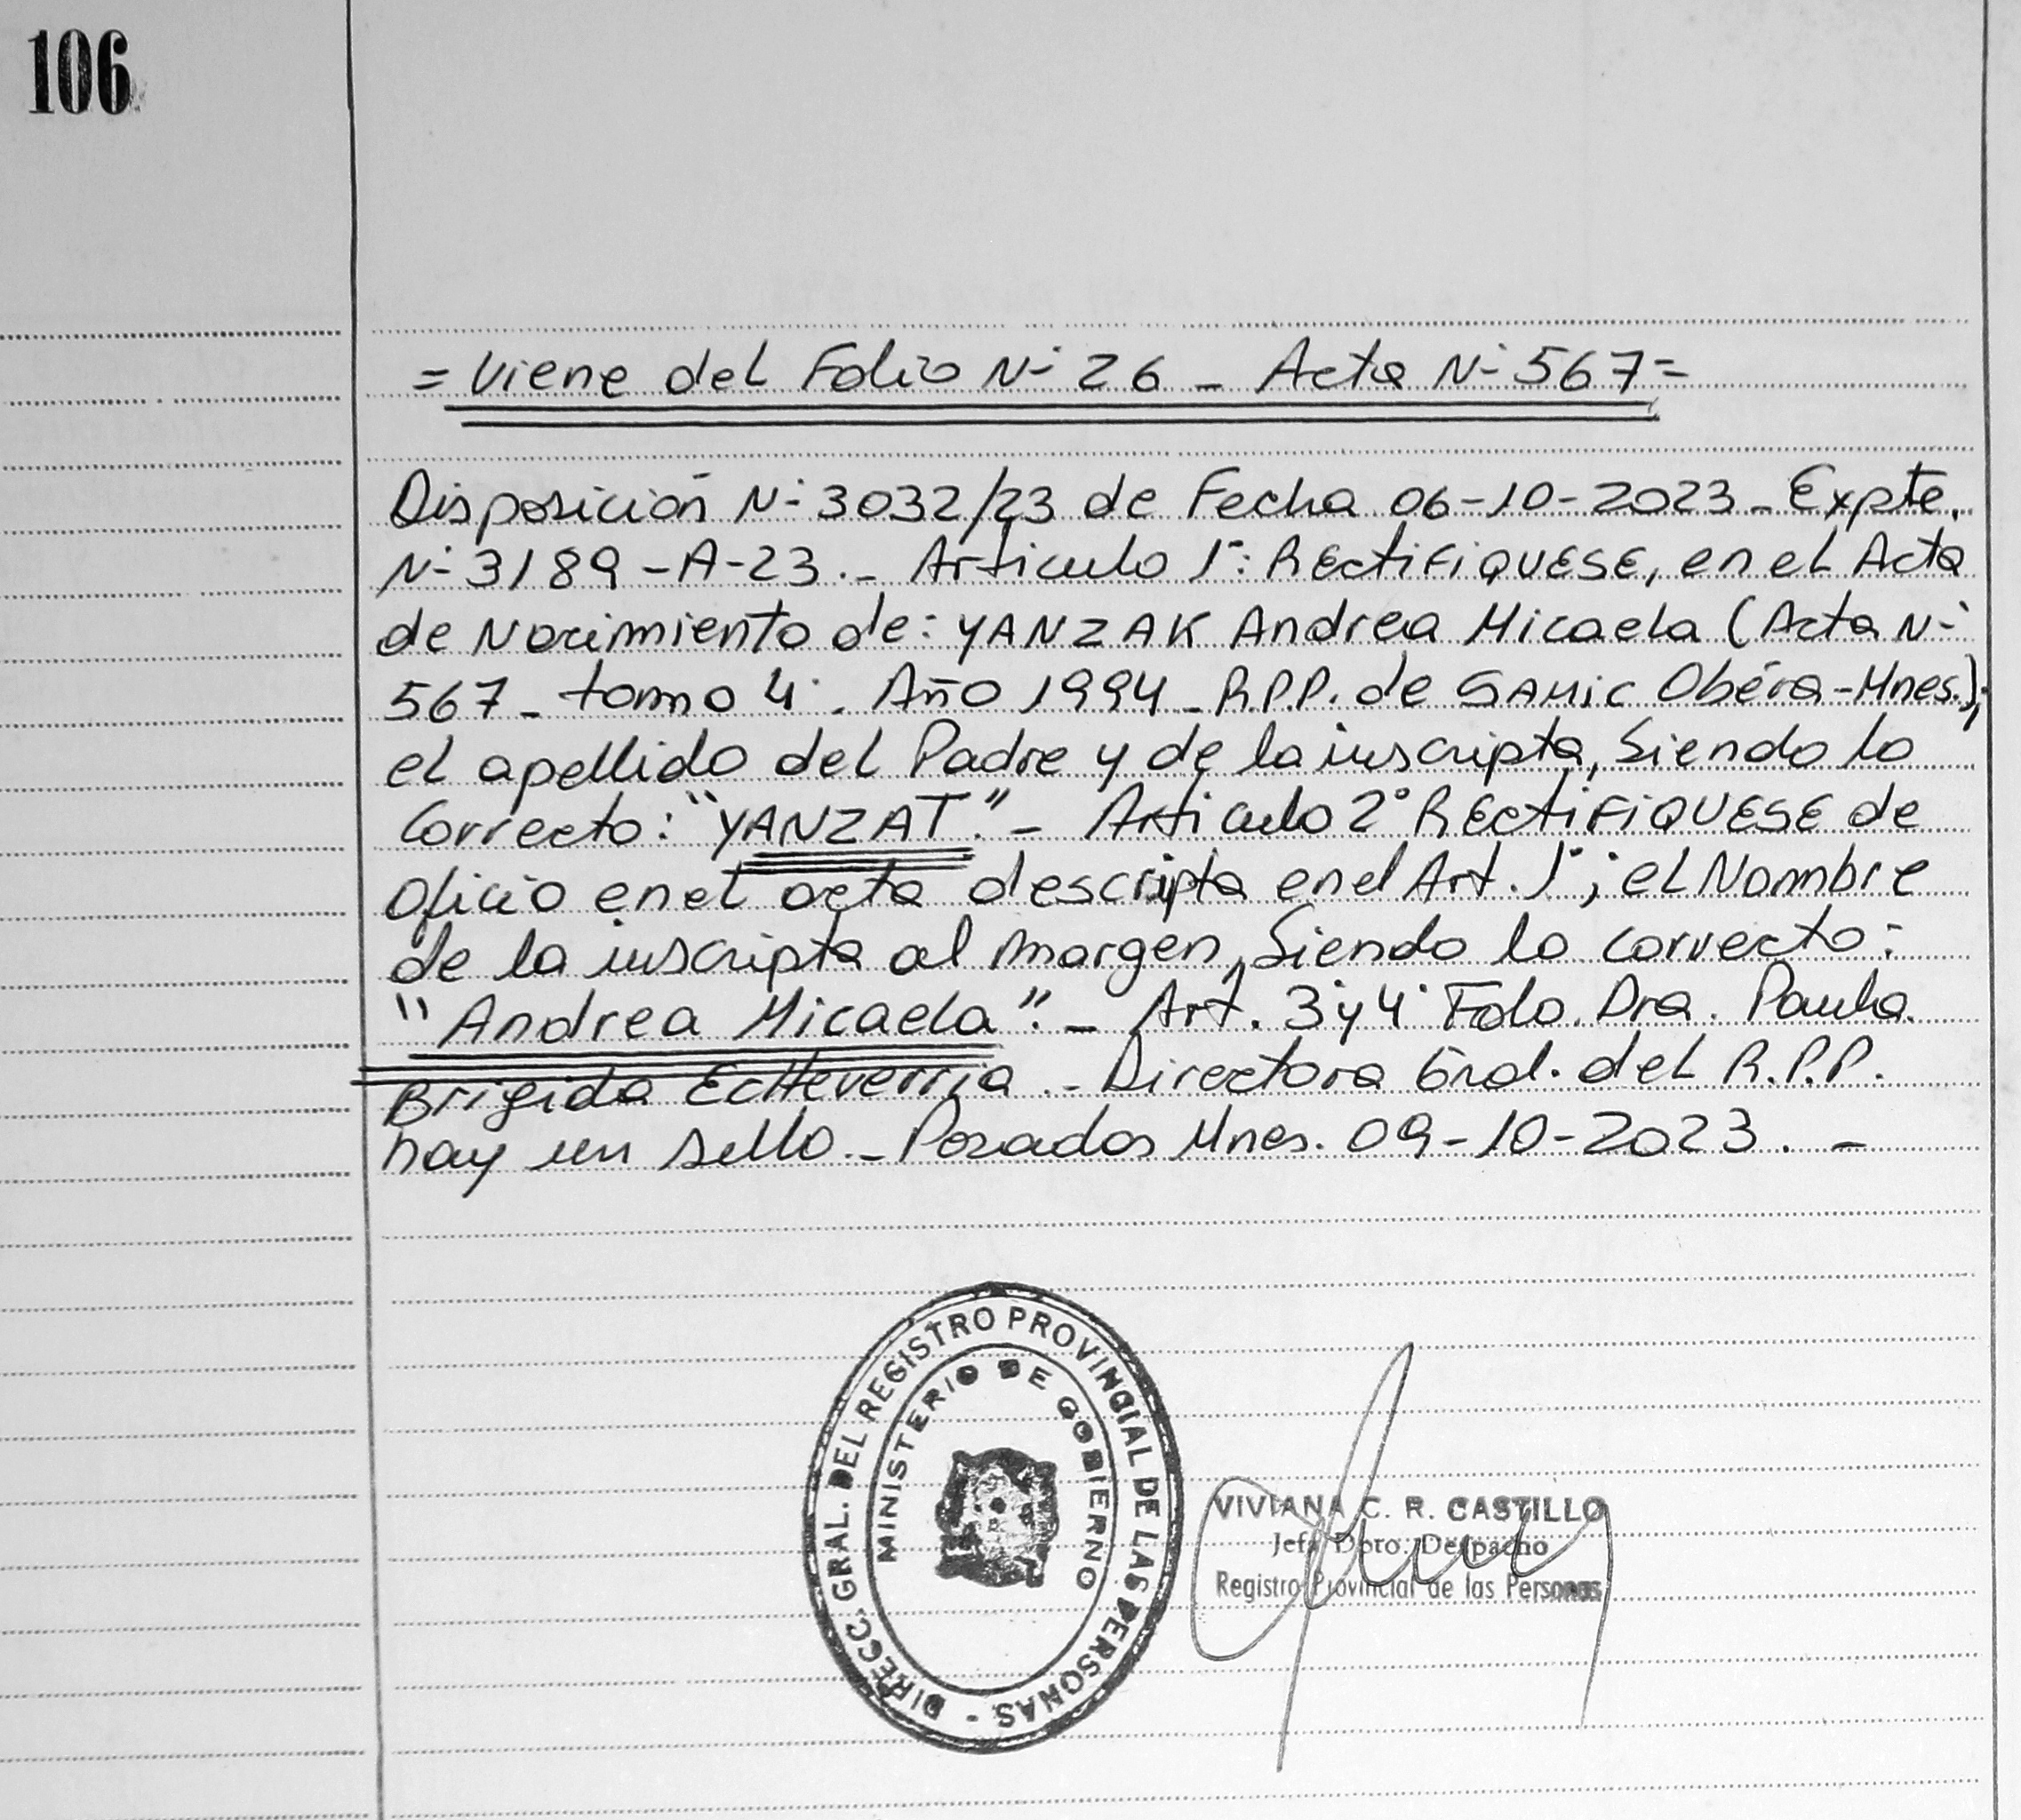 106
= Viene del Folio N° 26 - Acta N° 567 =
Disposición N° 3032/23 de Fecha 06-10-2023 - Expte.
N° 3189-A-23.- Articulo 1°: RECTIFIQUESE, en el Acta
de Nacimiento de: YANZAK Andrea Micaela (Acta N°
567 - tomo 4°. Año 1994 - R.P.P. de SAMIC Oberá-Mnes.);
el apellido del Padre y de la inscripta, Siendo lo
Correcto: "YANZAT".- Articulo 2° RECTIFIQUESE de
Oficio en el acta descripta en el Art. 1°; el Nombre
de la inscripta al margen, Siendo lo correcto:
"Andrea Micaela".- Art. 3° y 4° Fdo. Dra. Paula.
Brigida Echeverria.- Directora Gral. del R.P.P.
hay un sello.- Posadas Mnes. 09-10-2023. -
DIRECC. GRAL. DEL REGISTRO PROVINCIAL DE LAS PERSONAS -
MINISTERIO DE GOBIERNO
VIVIANA C. R. CASTILLO
Jefa Dpto. Despacho
Registro Provincial de las Personas